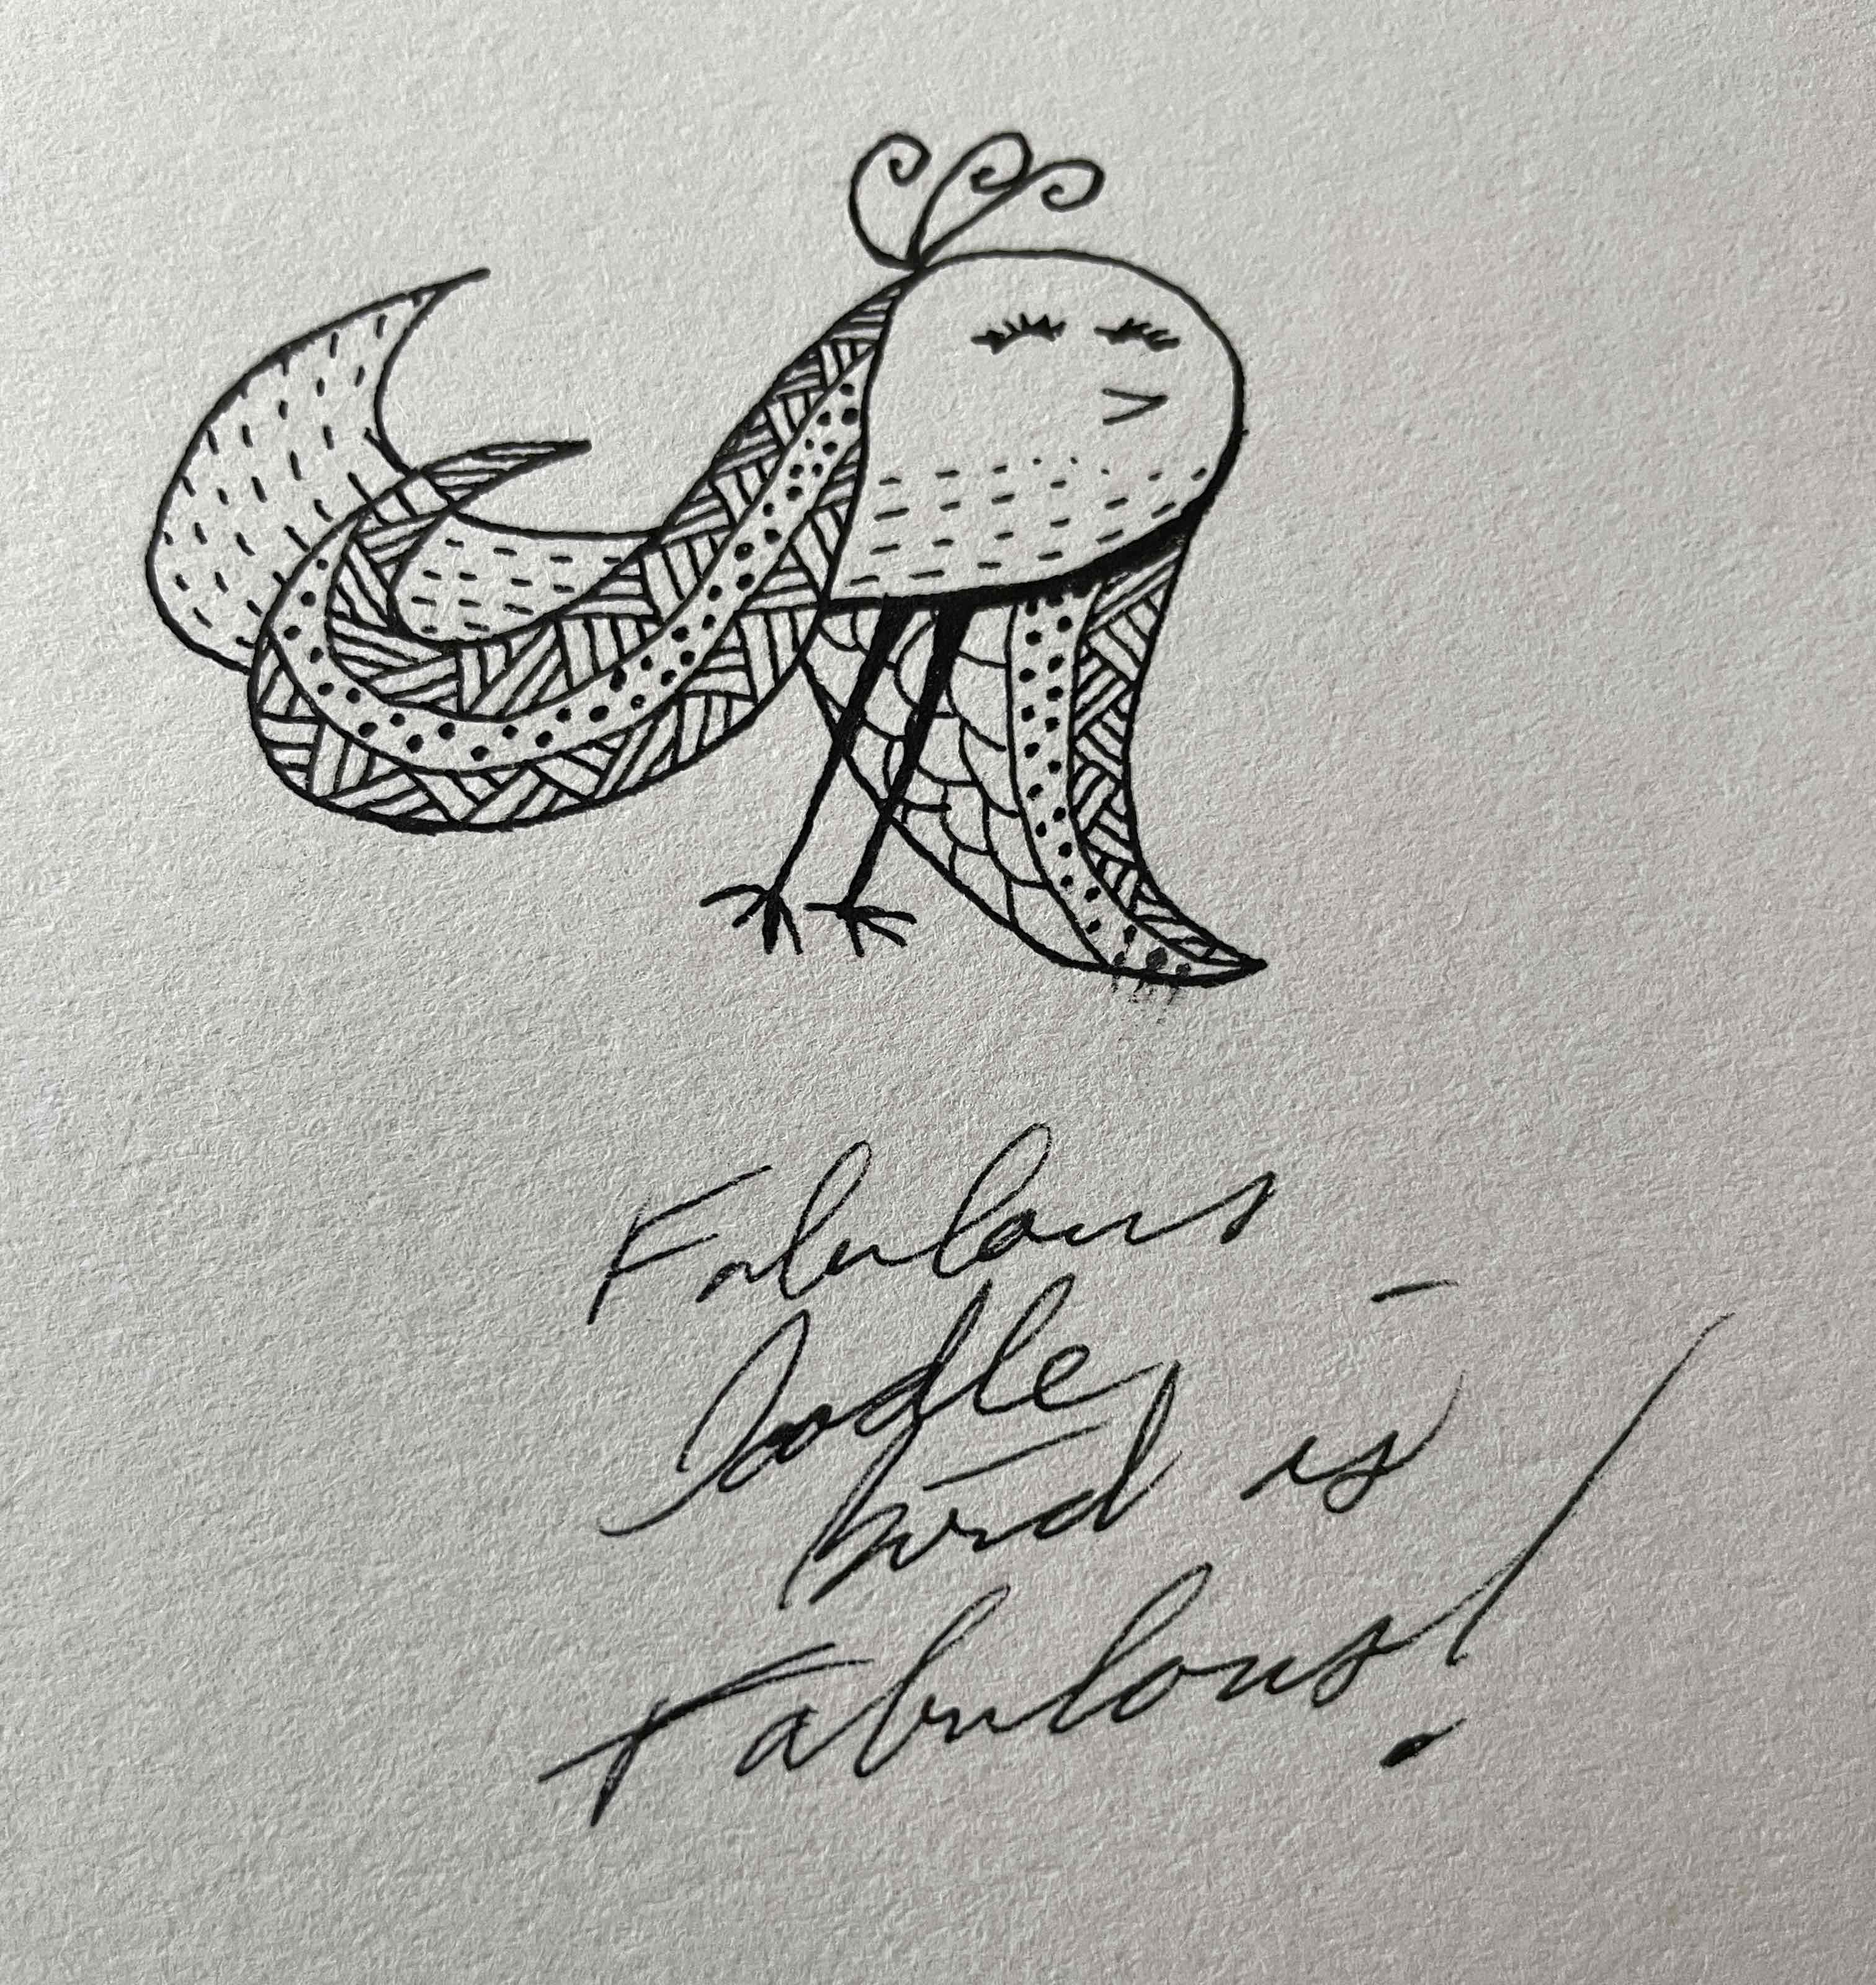 Fabulous
Doodle
bird is
Fabulous!